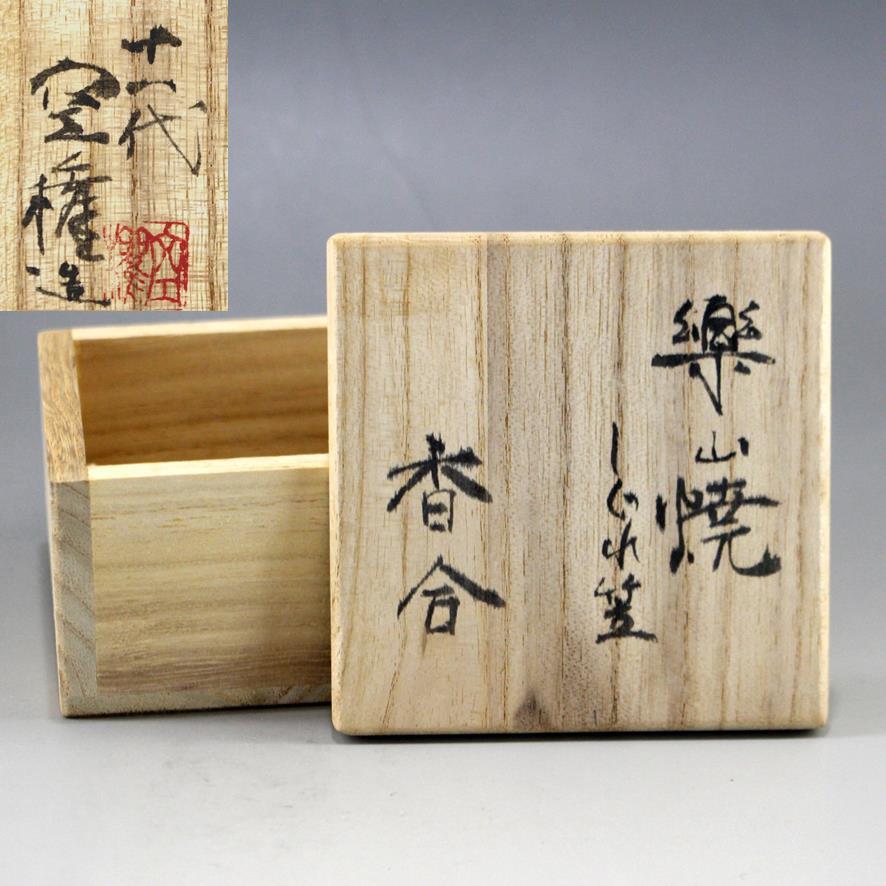 樂山焼
しぐれ笠
香合
十一代
空權造